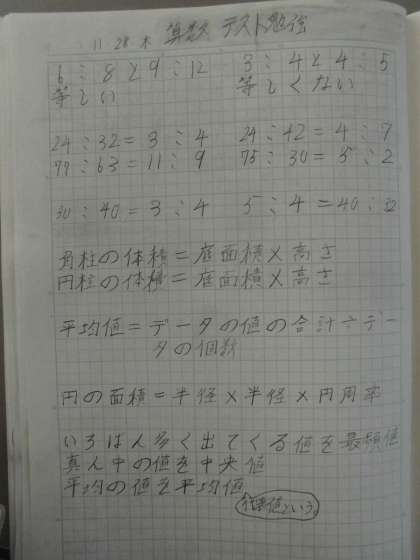 11 28 木 算数 テスト勉強
6:8と9:12 3:4と4:5
等しい 等しくない
24:32=3:4 24:42=4:7
77:63=11:9 75:30=5:2
30:40=3:4 5:4=40:32
角柱の体積=底面積×高さ
円柱の体積=底面積×高さ
平均値=データの値の合計÷デー
タの個数
円の面積=半径×半径×円周率
いちばん多く出てくる値を最頻値
真ん中の値を中央値
平均の値を平均値
代表値という。